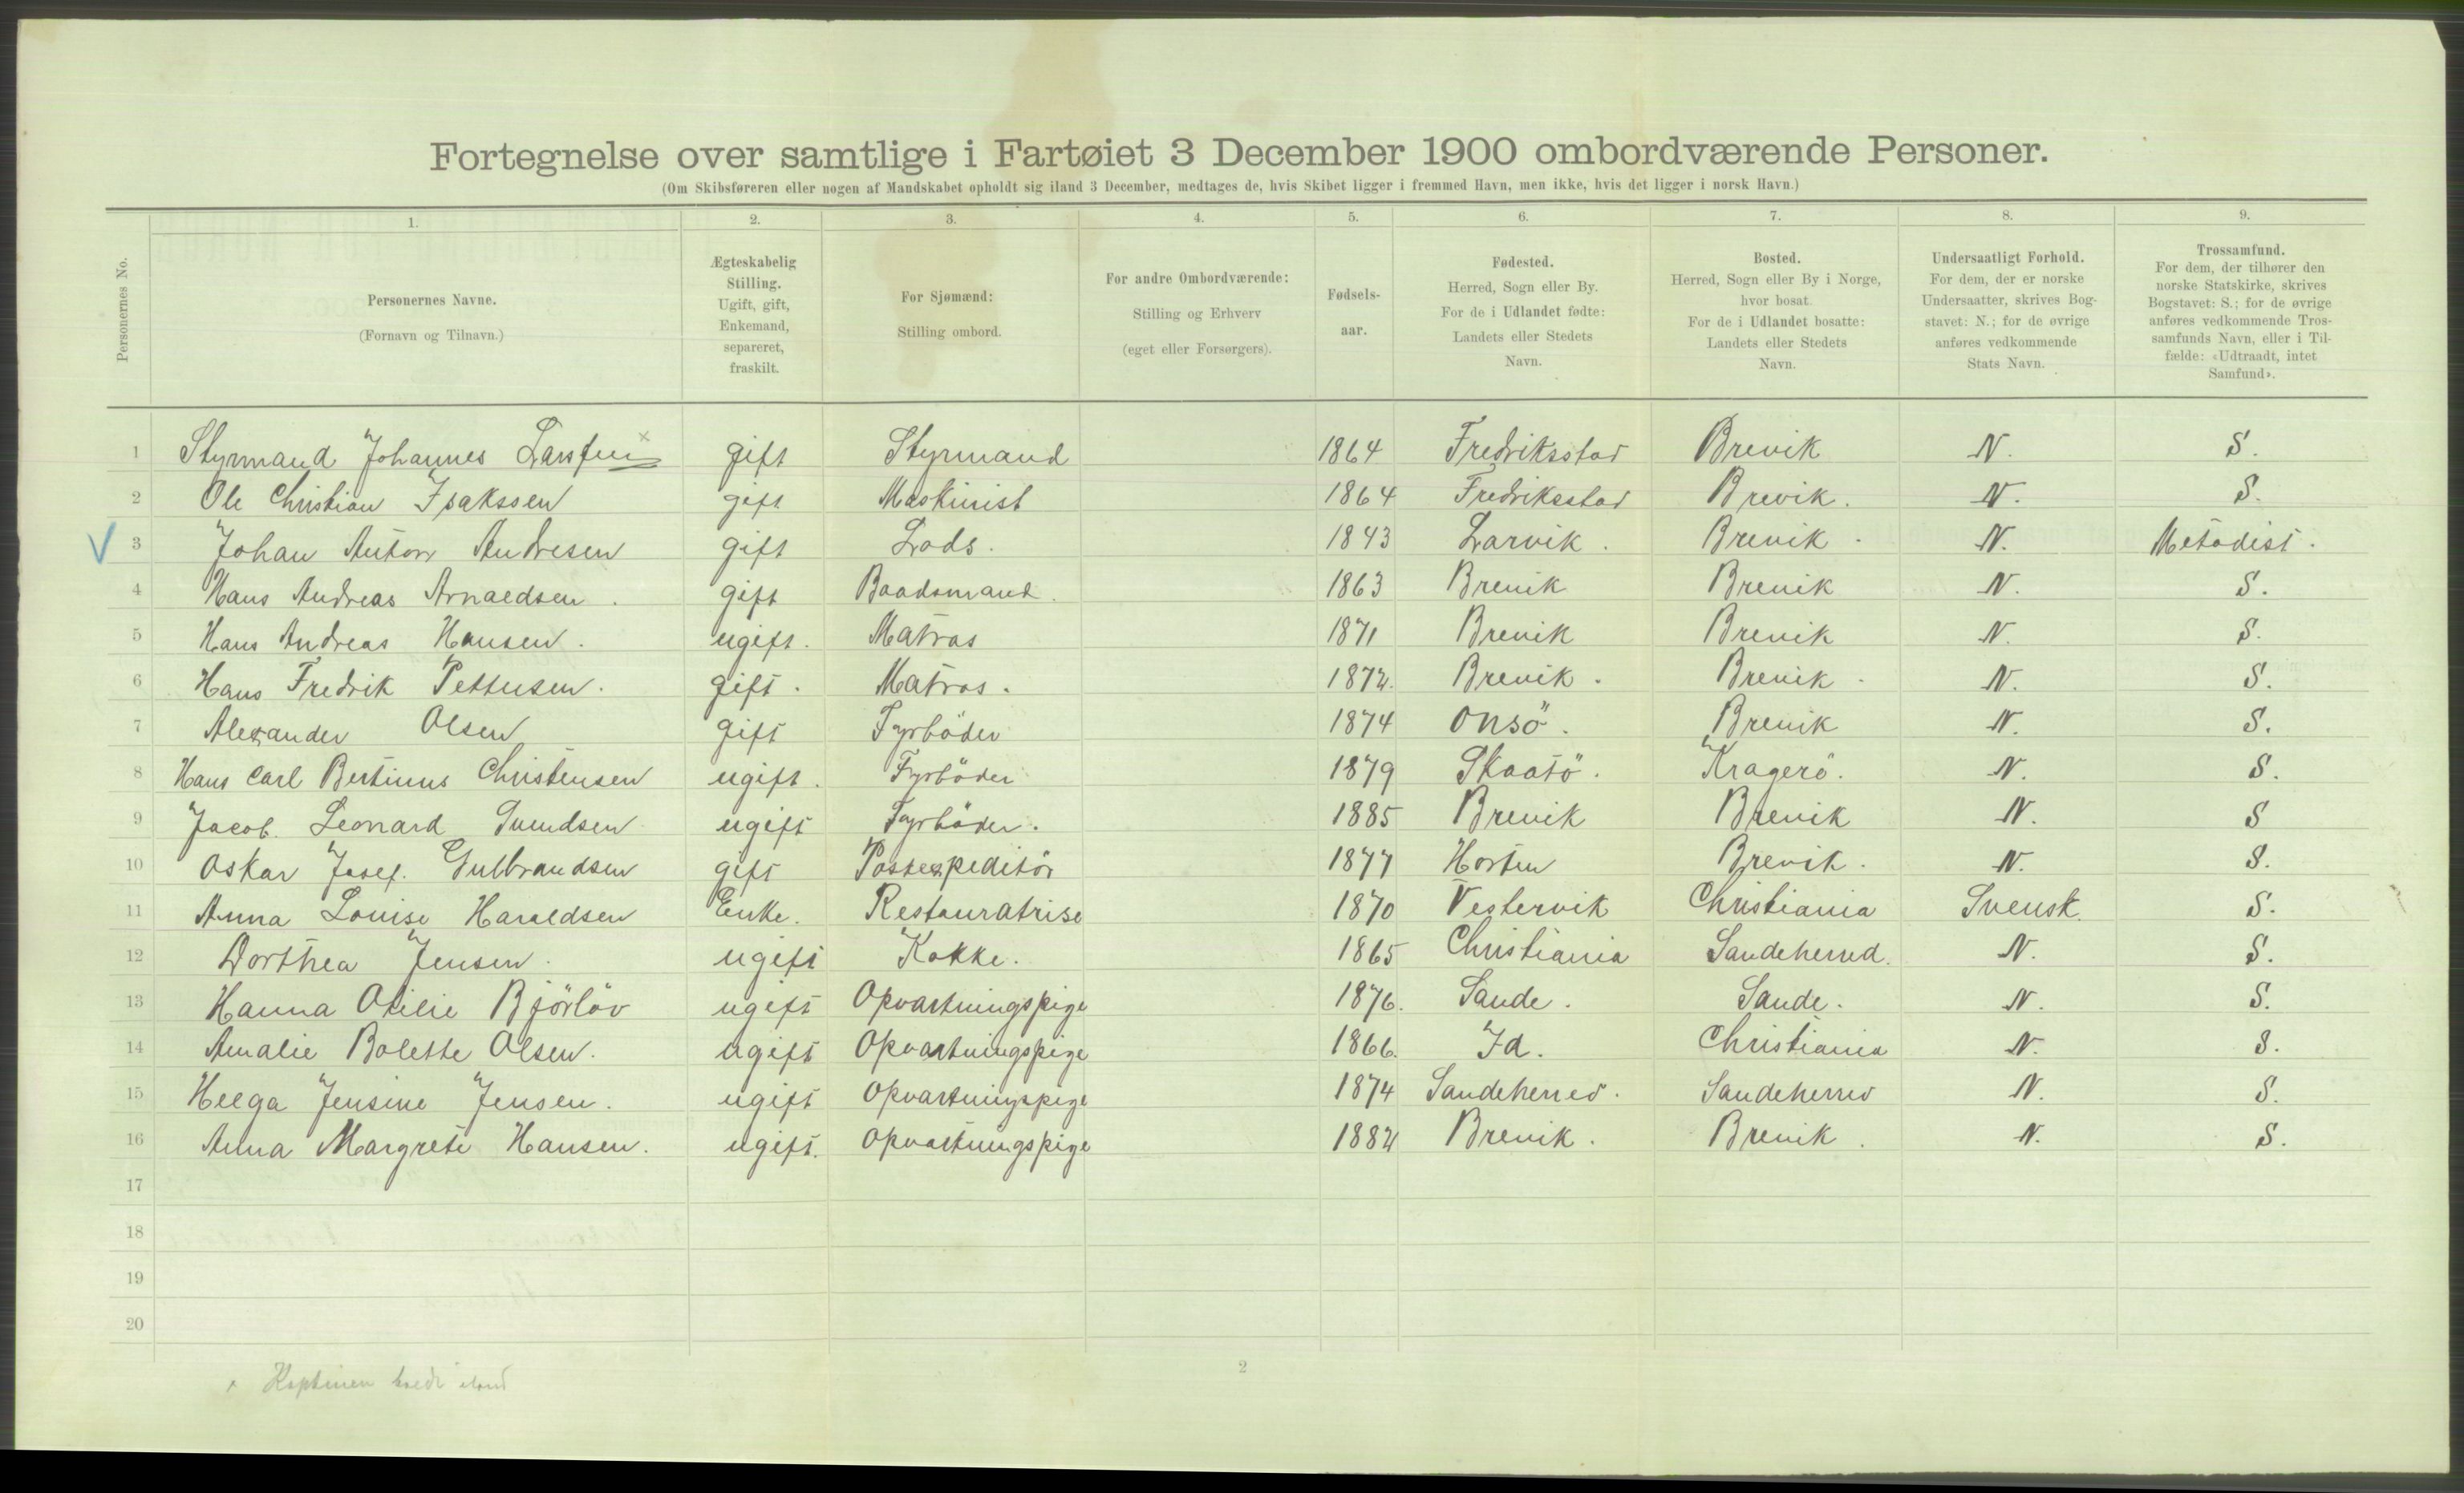 Fortegnelse over samtlige i Fartøiet 3 December 1900 ombordværende Personer.
(Om Skibsføreren eller nogen af Mandskabet opholdt sig iland 3 December, medtages de, hvis Skibet ligger i fremmed Havn, men ikke, hvis det ligger i norsk Havn.)
Personernes No.
1.
Personernes Navne.
(Fornavn og Tilnavn.)
2.
Ægteskabelig
Stilling.
Ugift, gift,
Enkemand,
separeret,
fraskilt.
3.
For Sjømænd:
Stilling ombord.
4.
For andre Ombordværende:
Stilling og Erhverv
(eget eller Forsørgers).
5.
Fødsels-
aar.
6.
Fødested.
Herred, Sogn eller By.
For de i Udlandet fødte:
Landets eller Stedets
Navn.
7.
Bosted.
Herred, Sogn eller By i Norge,
hvor bosat.
For de i Udlandet bosatte:
Landets eller Stedets
Navn.
8.
Undersaatligt Forhold.
For dem, der er norske
Undersaatter, skrives Bog-
stavet: N.; for de øvrige
anføres vedkommende
Stats Navn.
9.
Trossamfund.
For dem, der tilhører den
norske Statskirke, skrives
Bogstavet: S.; for de øvrige
anføres vedkommende Tros-
samfunds Navn, eller i Til-
fælde: «Udtraadt, intet
Samfund».
1 Styrmand Johannes Larsen x gift Styrmand 1864 Fredriksstad Brevik N. S.
2 Ole Christian Isakssen gift Maskinist 1864 Fredriksstad Brevik. N. S.
V 3 Johan Anton Andresen gift Lods. 1843 Larvik. Brevik. N. Metodist.
4 Hans Andreas Arnaldsen. gift Baadsmand. 1863 Brevik Brevik N. S.
5 Hans Andreas Hansen. ugift. Matros 1871 Brevik Brevik N. S.
6 Hans Fredrik Pettersen. gift. Matros. 1872. Brevik. Brevik. N. S.
7 Alexander Olsen gift Fyrböder 1874 Onsö. Brevik N. S.
8 Hans Carl Bertinus Christensen ugift. Fyrböder 1879 Skaatö. Kragerö. N. S.
9 Jacob. Leonard Svendsen ugift Fyrböder. 1885 Brevik Brevik N. S
10 Oskar Josef. Gulbrandsen gift Postexpeditör 1877 Horten Brevik. N. S.
11 Anna Louise Haraldsen Enke. Restauratrise 1870 Vestervik Christiania Svensk. S.
12 Dorthea Jensen. ugift Kokke. 1865 Christiania Sandeherred. N. S.
13 Hanna Otilie Björlöv ugift Opvartningspige 1876. Sande. Sande. N. S.
14 Amalie Bolette Olsen. ugift Opvartningspige 1866. Id. Christiania N. S.
15 Helga Jensine Jensen. ugift Opvartningspige 1874 Sandeherred. Sandeherred N. S.
16 Anna Margrete Hansen. ugift. Opvartningspige 1882 Brevik. Brevik. N. S.
17
18
19
20
x Kaptinen boede iland
2